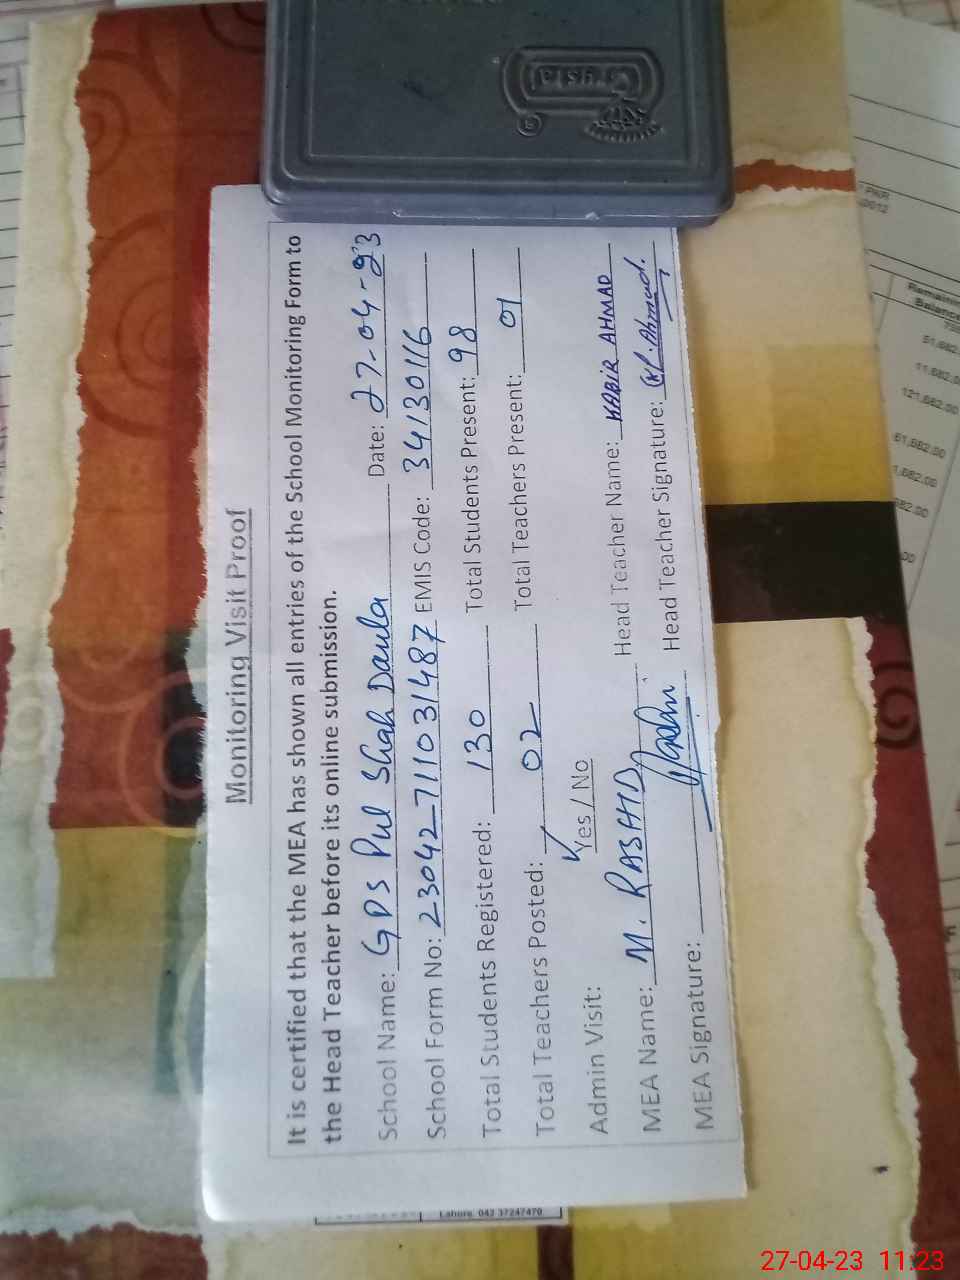 Crystal
Monitoring Visit Proof
It is certified that the MEA has shown all entries of the School Monitoring Form to
the Head Teacher before its online submission.
School Name: GPS Pul Shah Daula Date: 27-04-23
School Form No: 23042711031487 EMIS Code: 34130116
Total Students Registered: 130 Total Students Present: 98
Total Teachers Posted: 02 Total Teachers Present: 01
Admin Visit: ✓Yes / No
MEA Name: M. RASHID Head Teacher Name: KABIR AHMAD
MEA Signature: Head Teacher Signature: K.Ahmad.
Lahore. 042 37247470
PKR
Remaining
Balance
121,682.00
61,682.00
1,682.00
27-04-23 11:23